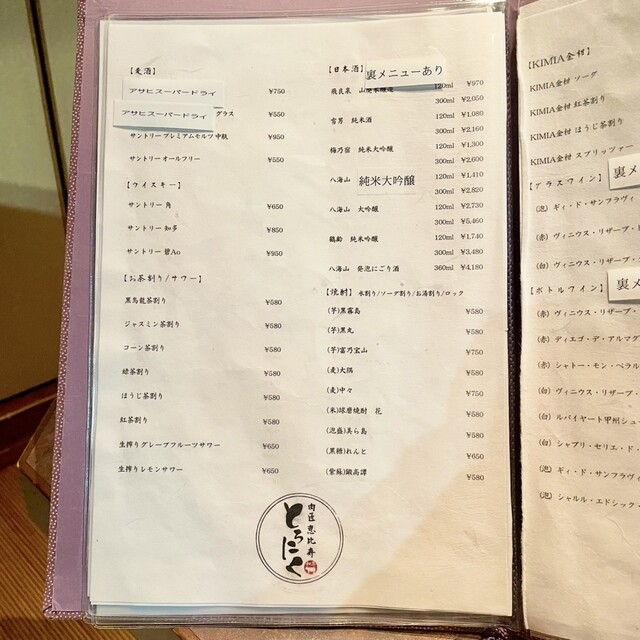 【麦酒】
アサヒスーパードライ ¥750
アサヒスーパードライ グラス ¥550
サントリープレミアムモルツ 中瓶 ¥950
サントリーオールフリー ¥550
【ウイスキー】
サントリー 角 ¥650
サントリー 知多 ¥850
サントリー 碧Ao ¥950
【お茶割り/サワー】
黒烏龍茶割り ¥580
ジャスミン茶割り ¥580
コーン茶割り ¥580
緑茶割り ¥580
ほうじ茶割り ¥580
紅茶割り ¥580
生搾りグレープフルーツサワー ¥650
生搾りレモンサワー ¥650
【日本酒】 裏メニューあり
飛良泉 120ml ¥970
300ml ¥2,050
雪男 純米酒 120ml ¥1,080
300ml ¥2,160
梅乃宿 純米大吟醸 120ml ¥1,300
300ml ¥2,600
八海山 純米大吟醸 120ml ¥1,410
300ml ¥2,820
八海山 大吟醸 120ml ¥2,730
300ml ¥5,460
鶴齢 純米吟醸 120ml ¥1,740
300ml ¥3,480
八海山 発泡にごり酒 360ml ¥4,180
【焼酎】 水割り/ソーダ割り/お湯割り/ロック
(芋)黒霧島 ¥580
(芋)黒丸 ¥580
(芋)富乃宝山 ¥750
(麦)大隅 ¥580
(麦)中々 ¥750
(米)球磨焼酎 花 ¥580
(泡盛)美ら島 ¥580
(黒糖)れんと ¥650
(紫蘇)鍛高譚 ¥580
肉匠恵比寿
とろにく
【KIMIA金柑】
KIMIA金柑 ソーダ
KIMIA金柑 紅茶割り
KIMIA金柑 ほうじ茶割り
KIMIA金柑 スプリッツァー
【グラスワイン】 裏メ
(泡) ギィ・ド・サンフラヴィ
(赤) ヴィニウス・リザーブ・
(白) ヴィニウス・リザーブ・
【ボトルワイン】 裏メ
(赤) ヴィニウス・リザーブ・
(赤) ディエゴ・デ・アルマグ
(赤) シャトー・モン・ペラル
(白) ヴィニウス・リザーブ・
(白) ルバイヤート甲州シュー
(白) シャブリ・セリエ・ド・
(泡) ギィ・ド・サンフラヴィ
(泡) シャルル・エドシック